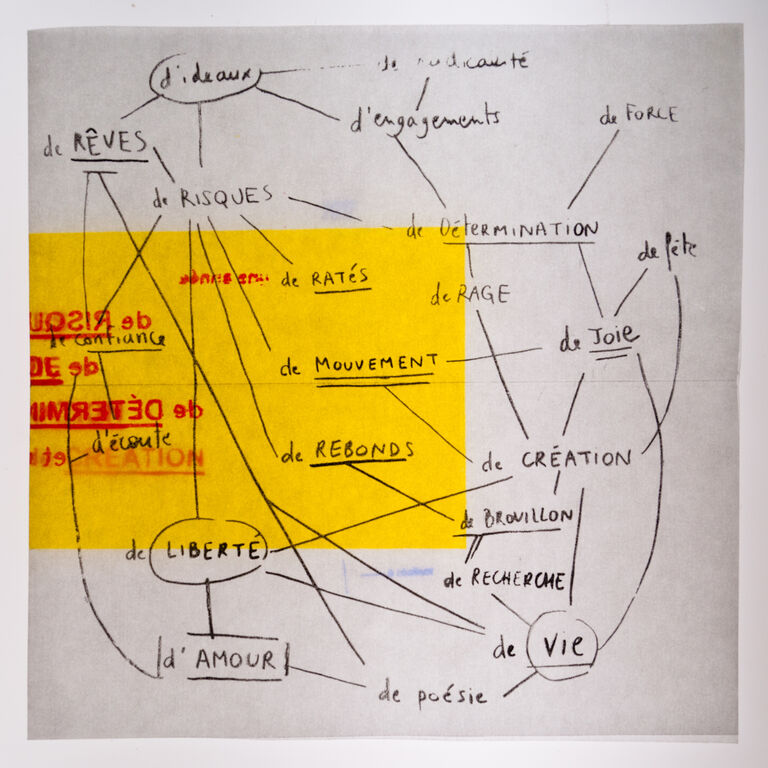 d'ideaux
de radicalité
d'engagements
de FORCE
de RÊVES
de RISQUES
de DéTERMINATION
de fête
de RATéS
une année
de RAGE
de RISQU
de confiance
de Joie
de MOUVEMENT
de JO
de DÉTERMIN
d'écoute
de REBONDS
de CRÉATION
et
CRÉATION
de BROUILLON
de LIBERTÉ
de RECHERCHE
de Vie
d'AMOUR
de poésie